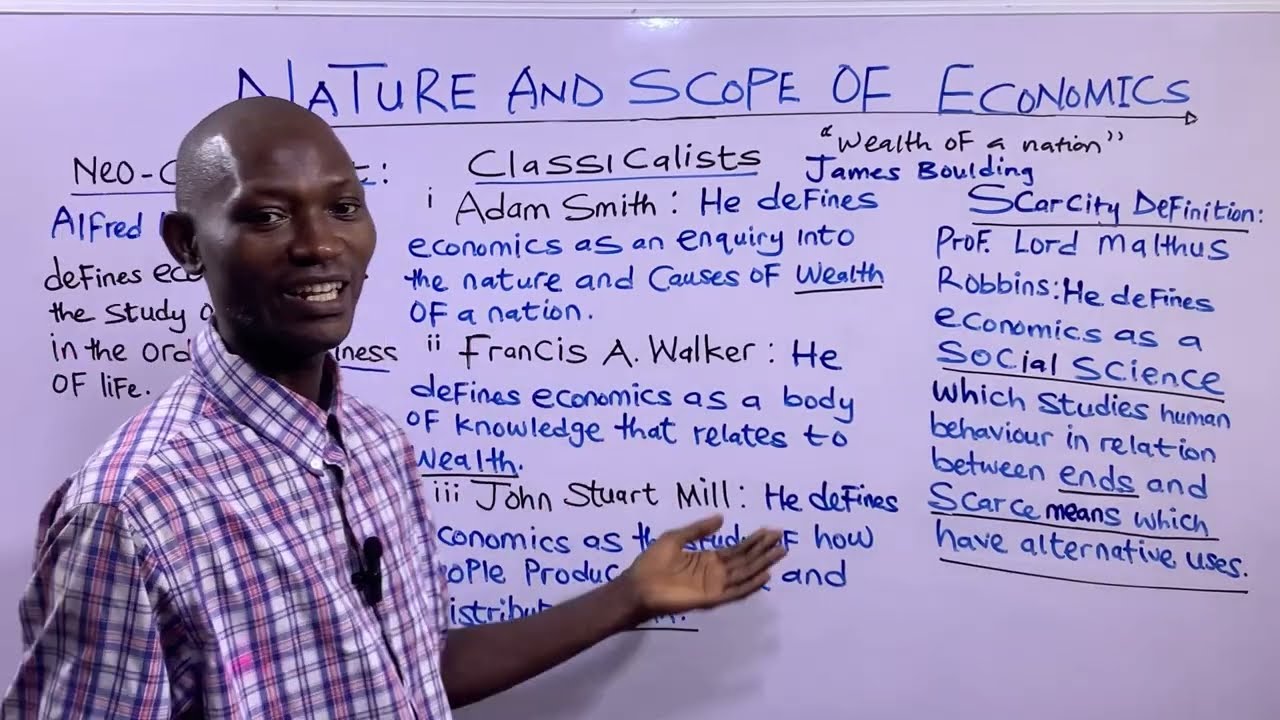 NATURE AND SCOPE OF ECONOMICS
Neo-C :
Alfred
defines eco
the Study
in the ord iness
OF life.
Classicalists
i Adam Smith : He defines
economics as an enquiry Into
the nature and Causes of Wealth
OF a nation.
ii Francis A. Walker : He
defines economics as a body
OF knowledge that relates to
Wealth.
iii John Stuart Mill : He defines
conomics as the study of how
ople Produc and
istribut
"Wealth of a nation"
James Boulding
Scarcity Definition:
Prof. Lord Malthus
Robbins: He defines
economics as a
Social Science
which studies human
behaviour in relation
between ends and
Scarce means which
have alternative uses.